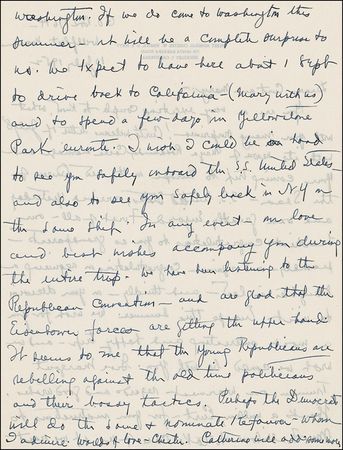 Washington. If we do come to Washington this
summer - it will be a complete surprise to
us. We expect to leave here about 1 Sept
to drive back to California - (Mary with us)
and to spend a few days in Yellowstone
Park enroute. I wish I could be on hand
to see you safely onboard the S.S. United States -
and also to see you safely back in N.Y. on
the same ship. In any event - our love
and best wishes accompany you during
the entire trip. We have been listening to the
Republican Convention - and are glad that the
Eisenhower forces are getting the upper hand.
It seems to me that the Young Republicans are
rebelling against the old time politicians
and their bossy tactics. Perhaps the Democrats
will do the same & nominate Kefauver - whom
I admire. Worlds of love - Chester. Catherine will add some more